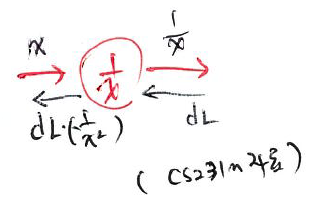 x
1/x
1/x
dL·(-1/x²)
dL
(CS231n 강의)